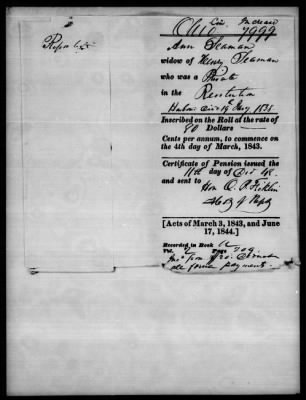 Ohio Increase
7999
Ann Seaman
widow of Henry Seaman
who was a Private
in the Revolution
Inscribed on the Roll at the rate of
80 Dollars
Cents per annum, to commence on
the 4th day of March, 1843.
Certificate of Pension issued the
11th day of Oct 48.
and sent to
Hon O. B. Ficklin
[Acts of March 3, 1843, and June
17, 1844.]
Recorded in Book
Vol. Page 209.
payment.